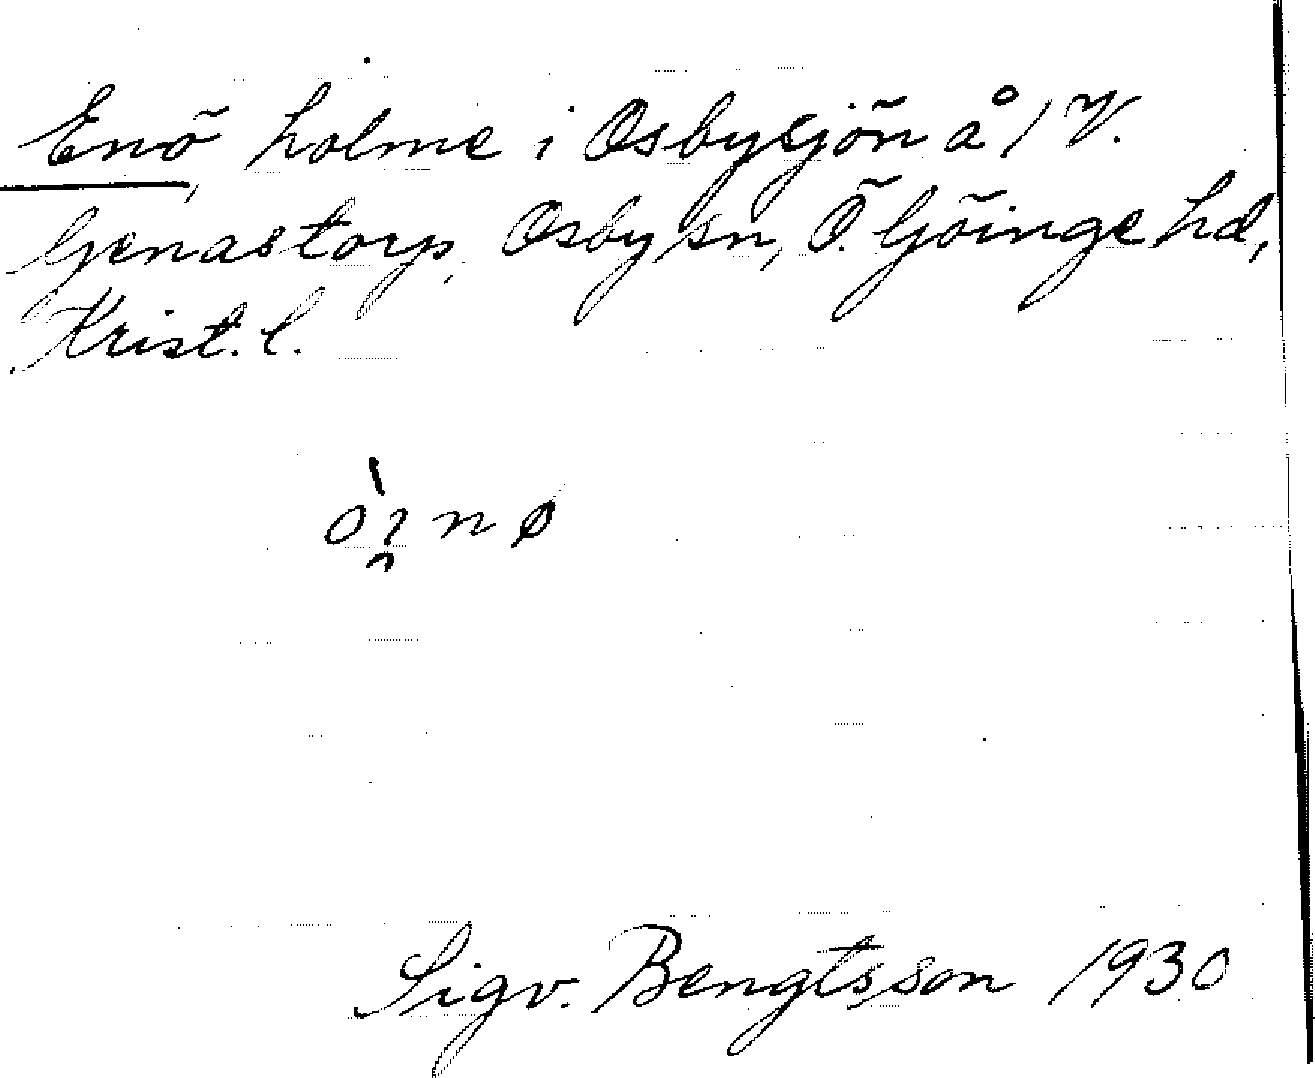 Enö, holme i Osbysjön å 1 V.
Genastorp, Osby sn, Ö. Göinge hd,
Krist. l.
Sigv. Bengtsson 1930